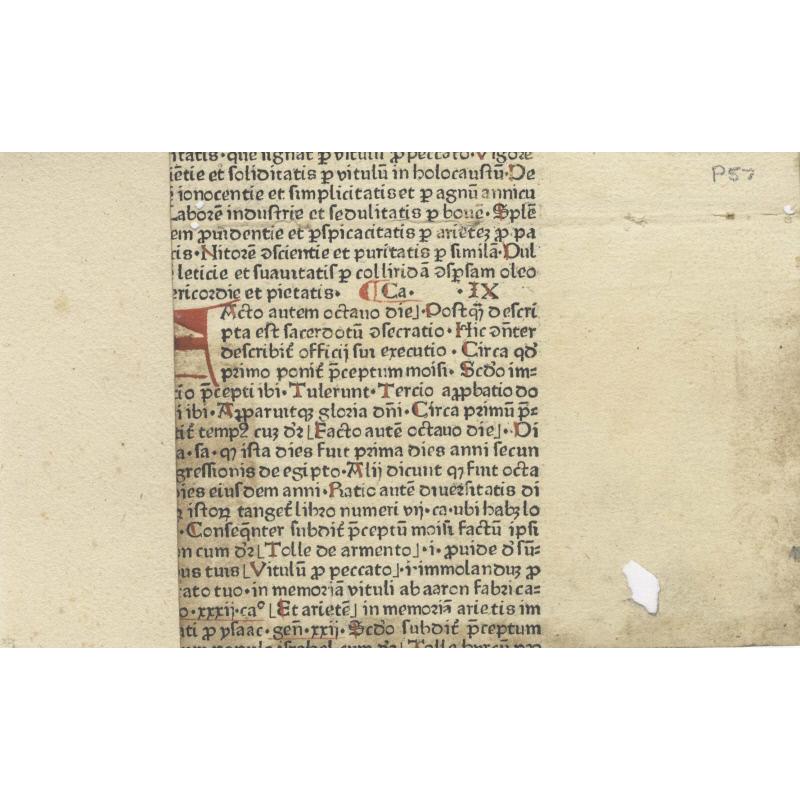 P57
itatis·que signat̄ ꝑ vitulū ꝓ peccato·Vigorē
iētie et soliditatis ꝑ vitulū in holocaustū·De
ionocentie et simplicitatis et ꝑ agnū annicu
Laborē industrie et sedulitatis ꝑ bouē·Splē
em ꝓuidentie et ꝑspicacitatis ꝑ arietez ꝓ pa
cis·Nitorē ꝯscientie et puritatis ꝑ similā·Dul
leticie et suauitatis ꝑ colliridā ꝯspsam oleo
ericordie et pietatis· ¶Ca· ·IX
FActo autem octauo die⌋·Postqᷓ descri
pta est sacerdotū ꝯsecratio·Hic ꝯn̄ter
describit̄ officij sui executio·Circa qd̄
primo ponit̄ p̄ceptum moisi·Scd̄o im-
tio p̄cepti ibi·Tulerunt·Tercio aꝓpbatio do
i ibi·Apparuitqꝫ gloria dn̄i·Circa primū p̄-
tit̄ tempꝰ cuꝫ dr̄⌊Facto autē octauo die⌋·Di
a·sa·ꝙ ista dies fuit prima dies anni secun
gressionis de egipto·Alij dicunt ꝙ fuit octa
ies eiusdem anni·Ratio autē diuersitatis di
istoꝝ tanget̄ libro numeri vij·ca·ubi habꝫ lo
·Conseqn̄ter subdit̄ p̄ceptū moisi factū ipsi
n cum dr̄⌊Tolle de armento⌋·i·ꝓuide d̓ sū-
us tuis⌊Vitulū ꝓ peccato⌋·i·immolanduꝫ ꝓ
ato tuo·in memoriā vituli ab aaron fabrica-
o·xxxij·caº⌊Et arietē⌋in memoriā arietis im
ati ꝓ ysaac·gen̄·xxij·Scd̄o subdit̄ p̄ceptum
populo israhel cum dr̄⌊Tolle hyrcū ꝓ